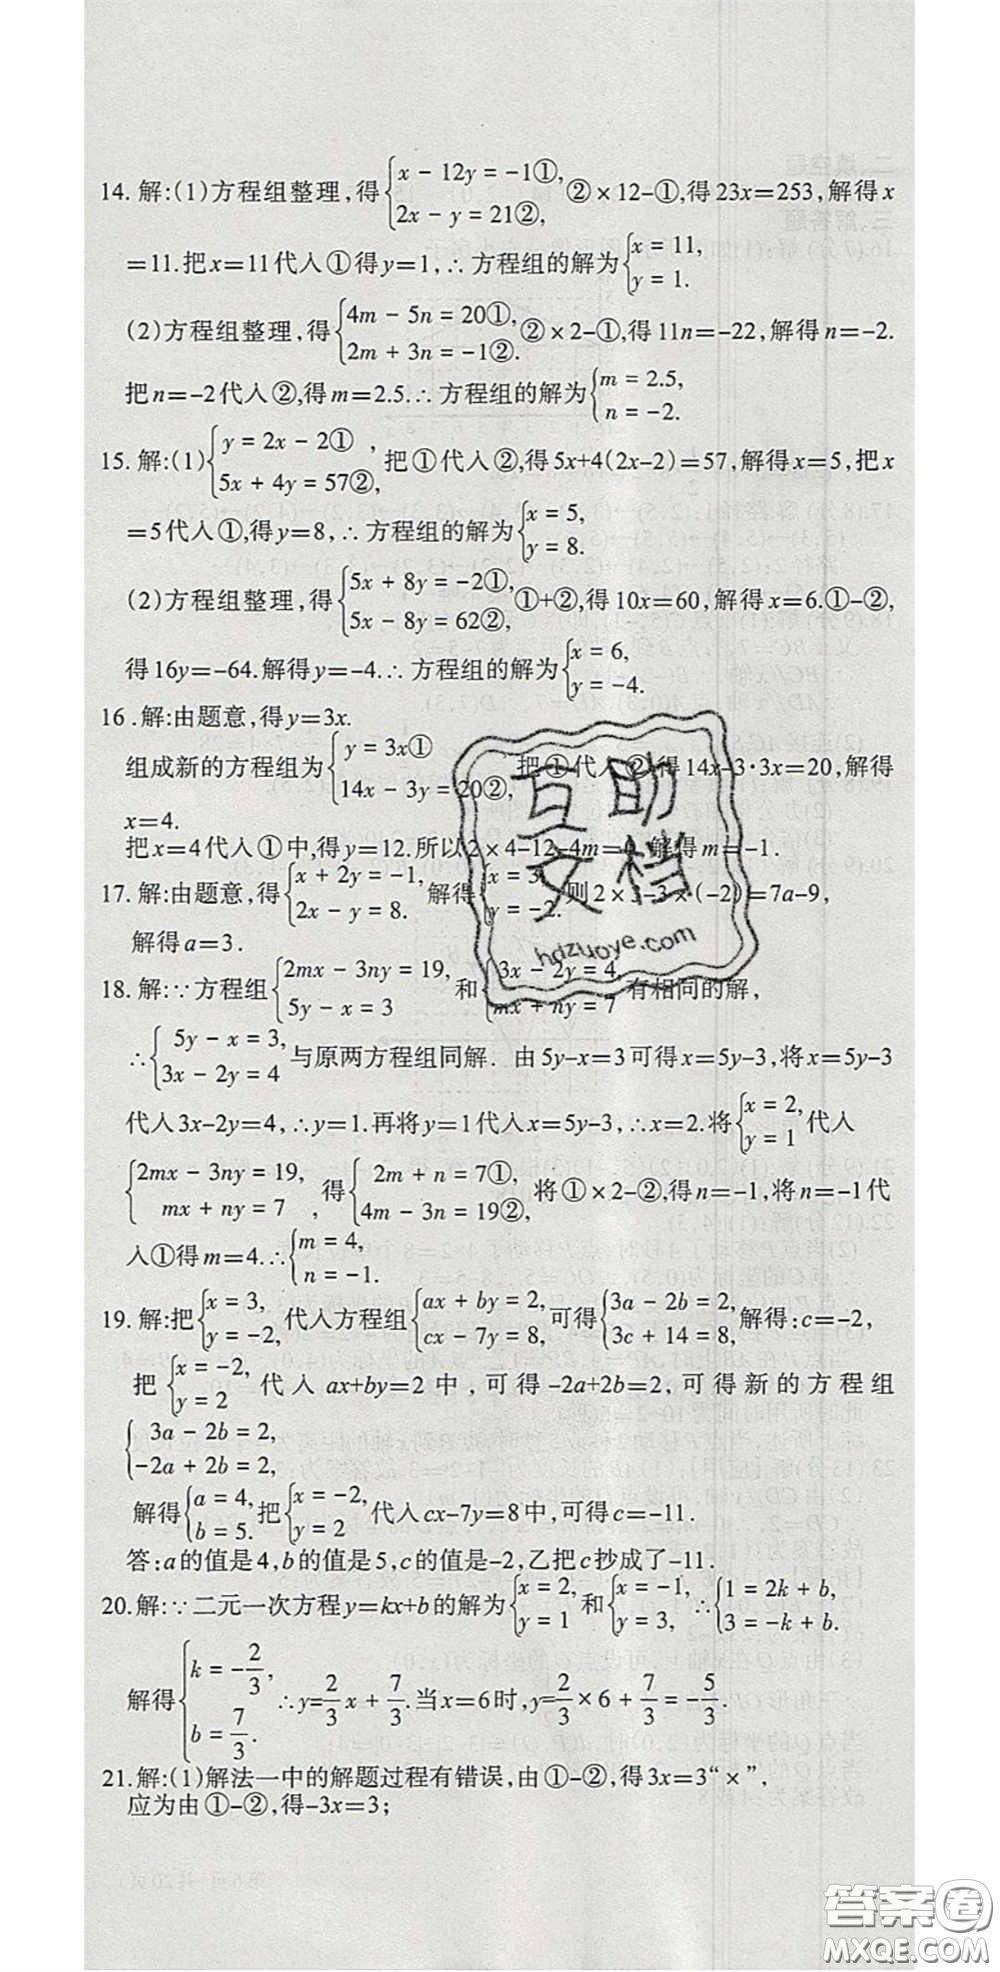 14.解:(1)方程组整理,得{x-12y=-1①, 2x-y=21②,②×12-①,得23x=253,解得x
=11.把x=11代入①得y=1,∴方程组的解为{x=11, y=1.
(2)方程组整理,得{4m-5n=20①, 2m+3n=-1②.②×2-①,得11n=-22,解得n=-2.
把n=-2代入②,得m=2.5.∴方程组的解为{m=2.5, n=-2.
15.解:(1){y=2x-2①, 5x+4y=57②,把①代入②,得5x+4(2x-2)=57,解得x=5,把x
=5代入①,得y=8,∴方程组的解为{x=5, y=8.
(2)方程组整理,得{5x+8y=-2①, 5x-8y=62②,①+②,得10x=60,解得x=6.①-②,
得16y=-64.解得y=-4.∴方程组的解为{x=6, y=-4.
16.解:由题意,得y=3x.
组成新的方程组为{y=3x① 14x-3y=20②,把①代入②,得14x-3·3x=20,解得
x=4.
把x=4代入①中,得y=12.所以2×4-12-4m= 解得m=-1.
17.解:由题意,得{x+2y=-1, 2x-y=8.解得{x=3 y=-2.则2×3-3×(-2)=7a-9,
解得a=3.
18.解:∵方程组{2mx-3ny=19, 5y-x=3 和{3x-2y=4, mx+ny=7 有相同的解,
∴{5y-x=3, 3x-2y=4 与原两方程组同解. 由5y-x=3可得x=5y-3,将x=5y-3
代入3x-2y=4,∴y=1.再将y=1代入x=5y-3,∴x=2.将{x=2, y=1 代入
{2mx-3ny=19, mx+ny=7,得{2m+n=7①, 4m-3n=19②,将①×2-②,得n=-1,将n=-1代
入①得m=4.∴{m=4, n=-1.
19.解:把{x=3, y=-2,代入方程组{ax+by=2, cx-7y=8,可得{3a-2b=2, 3c+14=8,解得:c=-2,
把{x=-2, y=2 代入ax+by=2中,可得-2a+2b=2,可得新的方程组
{3a-2b=2, -2a+2b=2,
解得{a=4, b=5.把{x=-2, y=2 代入cx-7y=8中,可得c=-11.
答:a的值是4,b的值是5,c的值是-2,乙把c抄成了-11.
20.解:∵二元一次方程y=kx+b的解为{x=2, y=1 和{x=-1, y=3,∴{1=2k+b, 3=-k+b.
解得{k=-2/3, b=7/3.∴y=2/3x+7/3.当x=6时,y=2/3×6+7/3=-5/3.
21.解:(1)解法一中的解题过程有错误,由①-②,得3x=3“×”,
应为由①-②,得-3x=3;
互助
文档
hdzuoye.com
答案圈
MXQE.COM